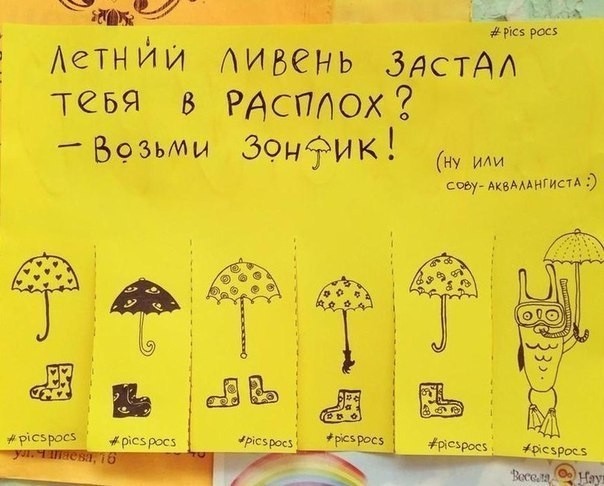 #Pics pocs
Летний ливень застал
тебя в расплох?
- Возьми зонтик!
(ну или
сову-аквалангиста :)
#picspocs
#picspocs
#picspocs
#picspocs
#picspocs
#picspocs
Весела Нау